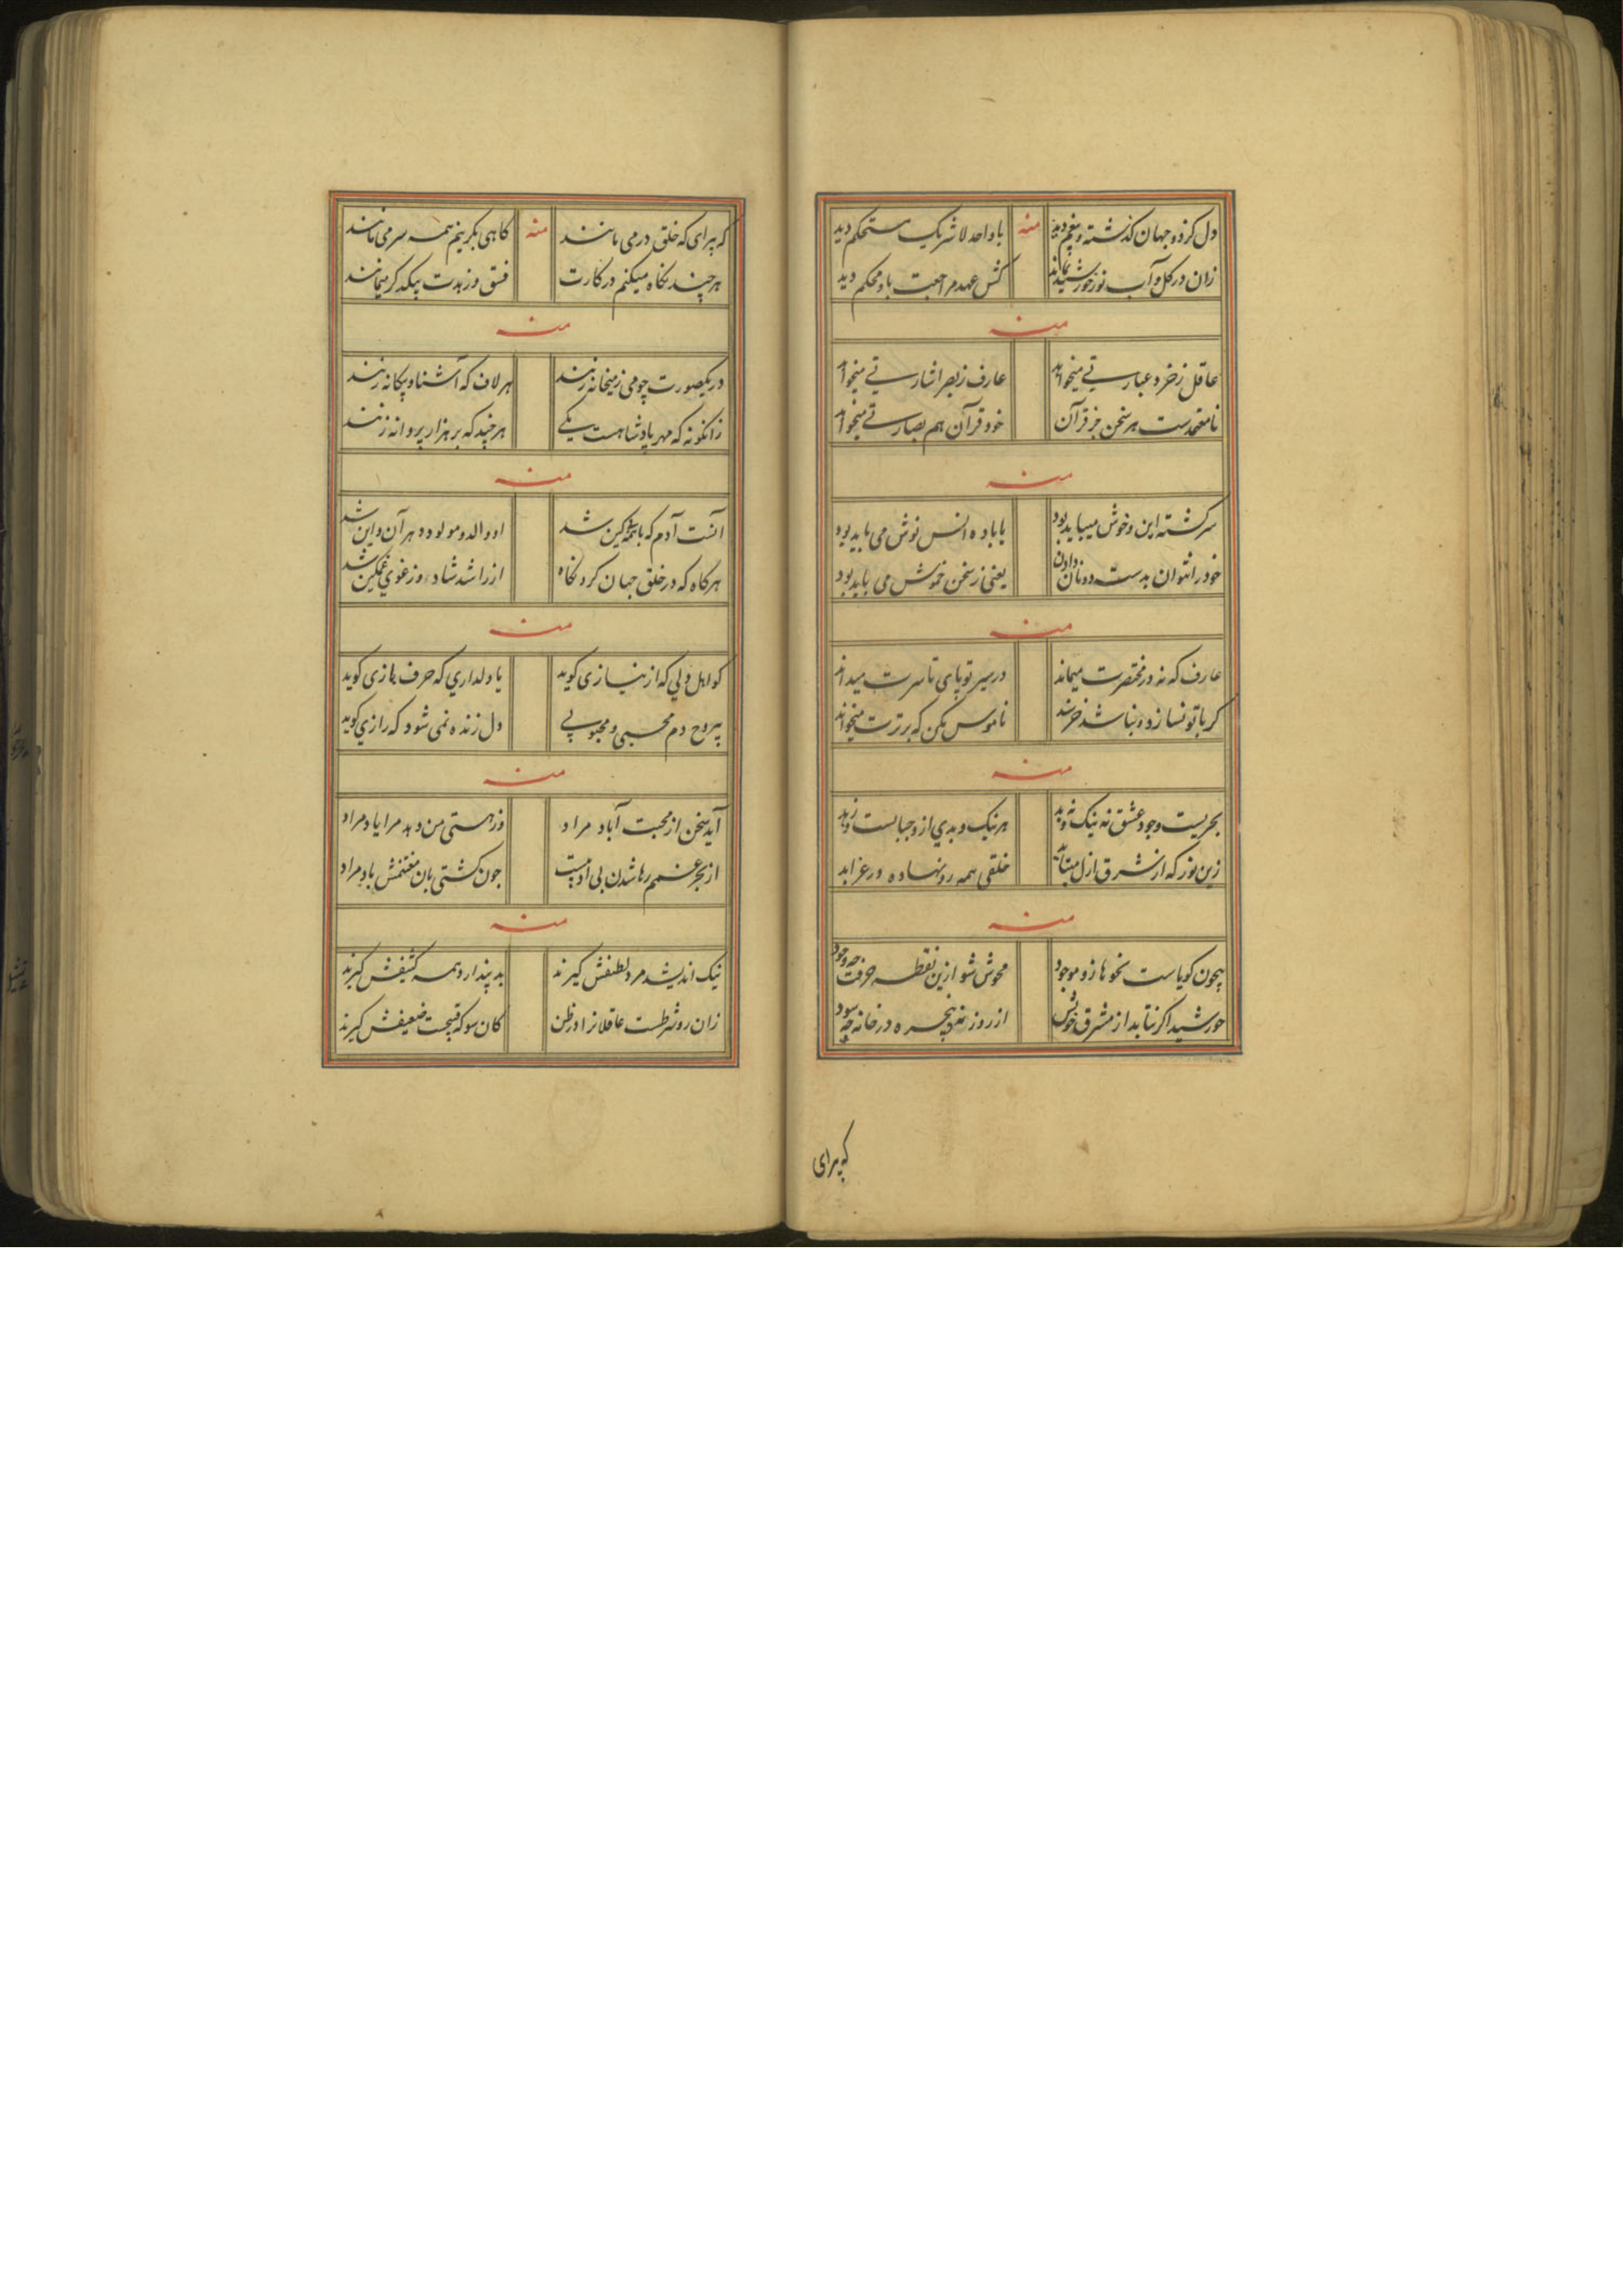 دل کز دو جهان گذشته و بیغم دید منه با واحد لا شریک مستحکم دید
زان در گل و آب نور خورشید بماند کش عهد مراجعت با و محکم دید
منه
عاقل ز خرد عبارتی میخواند عارف ز بصر اشارتی میخواند
نامعتمدست هر سخن جز قرآن خود قرآن هم بصارتی میخواند
منه
سرگشته این و خوش میباید بود با باده انس نوش می باید بود
خود را نتوان بدست دونان دادن یعنی ز سخن خموش می باید بود
منه
عارف که نه در مختصرت میماند در سیر تو پای تا سرت میداند
گر با تو نسازد و نباشد خرسند ناموس مکن که برترت میخواند
منه
بحریست وجود عشق نه نیک و نه بد هر نیک و بدی ازو جبابست و زبد
زین نور که از شرق ازل میتابد خلقی همه رو نهاده در عز ابد
منه
بیچون گویاست نحو ها زو موجود محوش شو ازین نقطه حرفت چه وجود
خورشید اگر نتابد از مشرق خویش از روزنه و پنجره در خانه چه سود
که برای
که برای که خلق در می مانند منه گاهی نگریم همه سر می مانند
هر چند نگاه میکنم در کارت فسق و زهدت بیکدگر میمانند
منه
در یکصورت چو می ز میخانه زنند هر لاف که آشنا و بیگانه زنند
زانگونه که مهر پادشاهست یکی هر چند که بر هزار پروانه زنند
منه
آنست آدم که با همه کین شد او والد و مولود هر آن و این شد
هرگاه که در خلق جهان کرد نگاه از راشد شاد و ز غوی غمگین شد
منه
کو اهل دلی که از نیازی گوید یا دلداری که حرف نازی گوید
بیروح دم محبی و محبوبی دل زنده نمی شود که رازی گوید
منه
آید سخن از محبت آباد مراد وز هستی من دهد مرا یاد مراد
از بحر غمم رها شدن بی او نیست چون کشتی بان مغتنمش باد مراد
منه
نیک اندیشد مرد لطیفش گیرند بد پندارد همه کثیفش گیرند
زان رو شرطست عاقلانرا در ظن کان سو که قبیحت ضعیفش گیرند